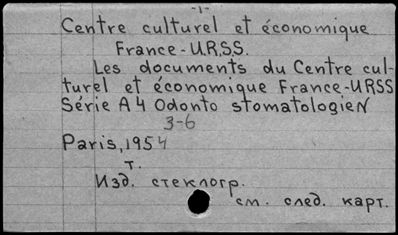 -1-
Centre culturel et économique
France-U.R.S.S.
Les documents du Centre cul-
turel et économique France-URSS
Série A4 Odonto stomatologieN
3-6
Paris, 1954
т.
Изд. стеклогр.
см. след. карт.